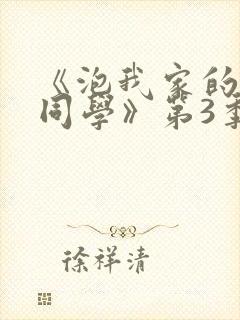 《泡我家的
同學》第3季
徐祥清